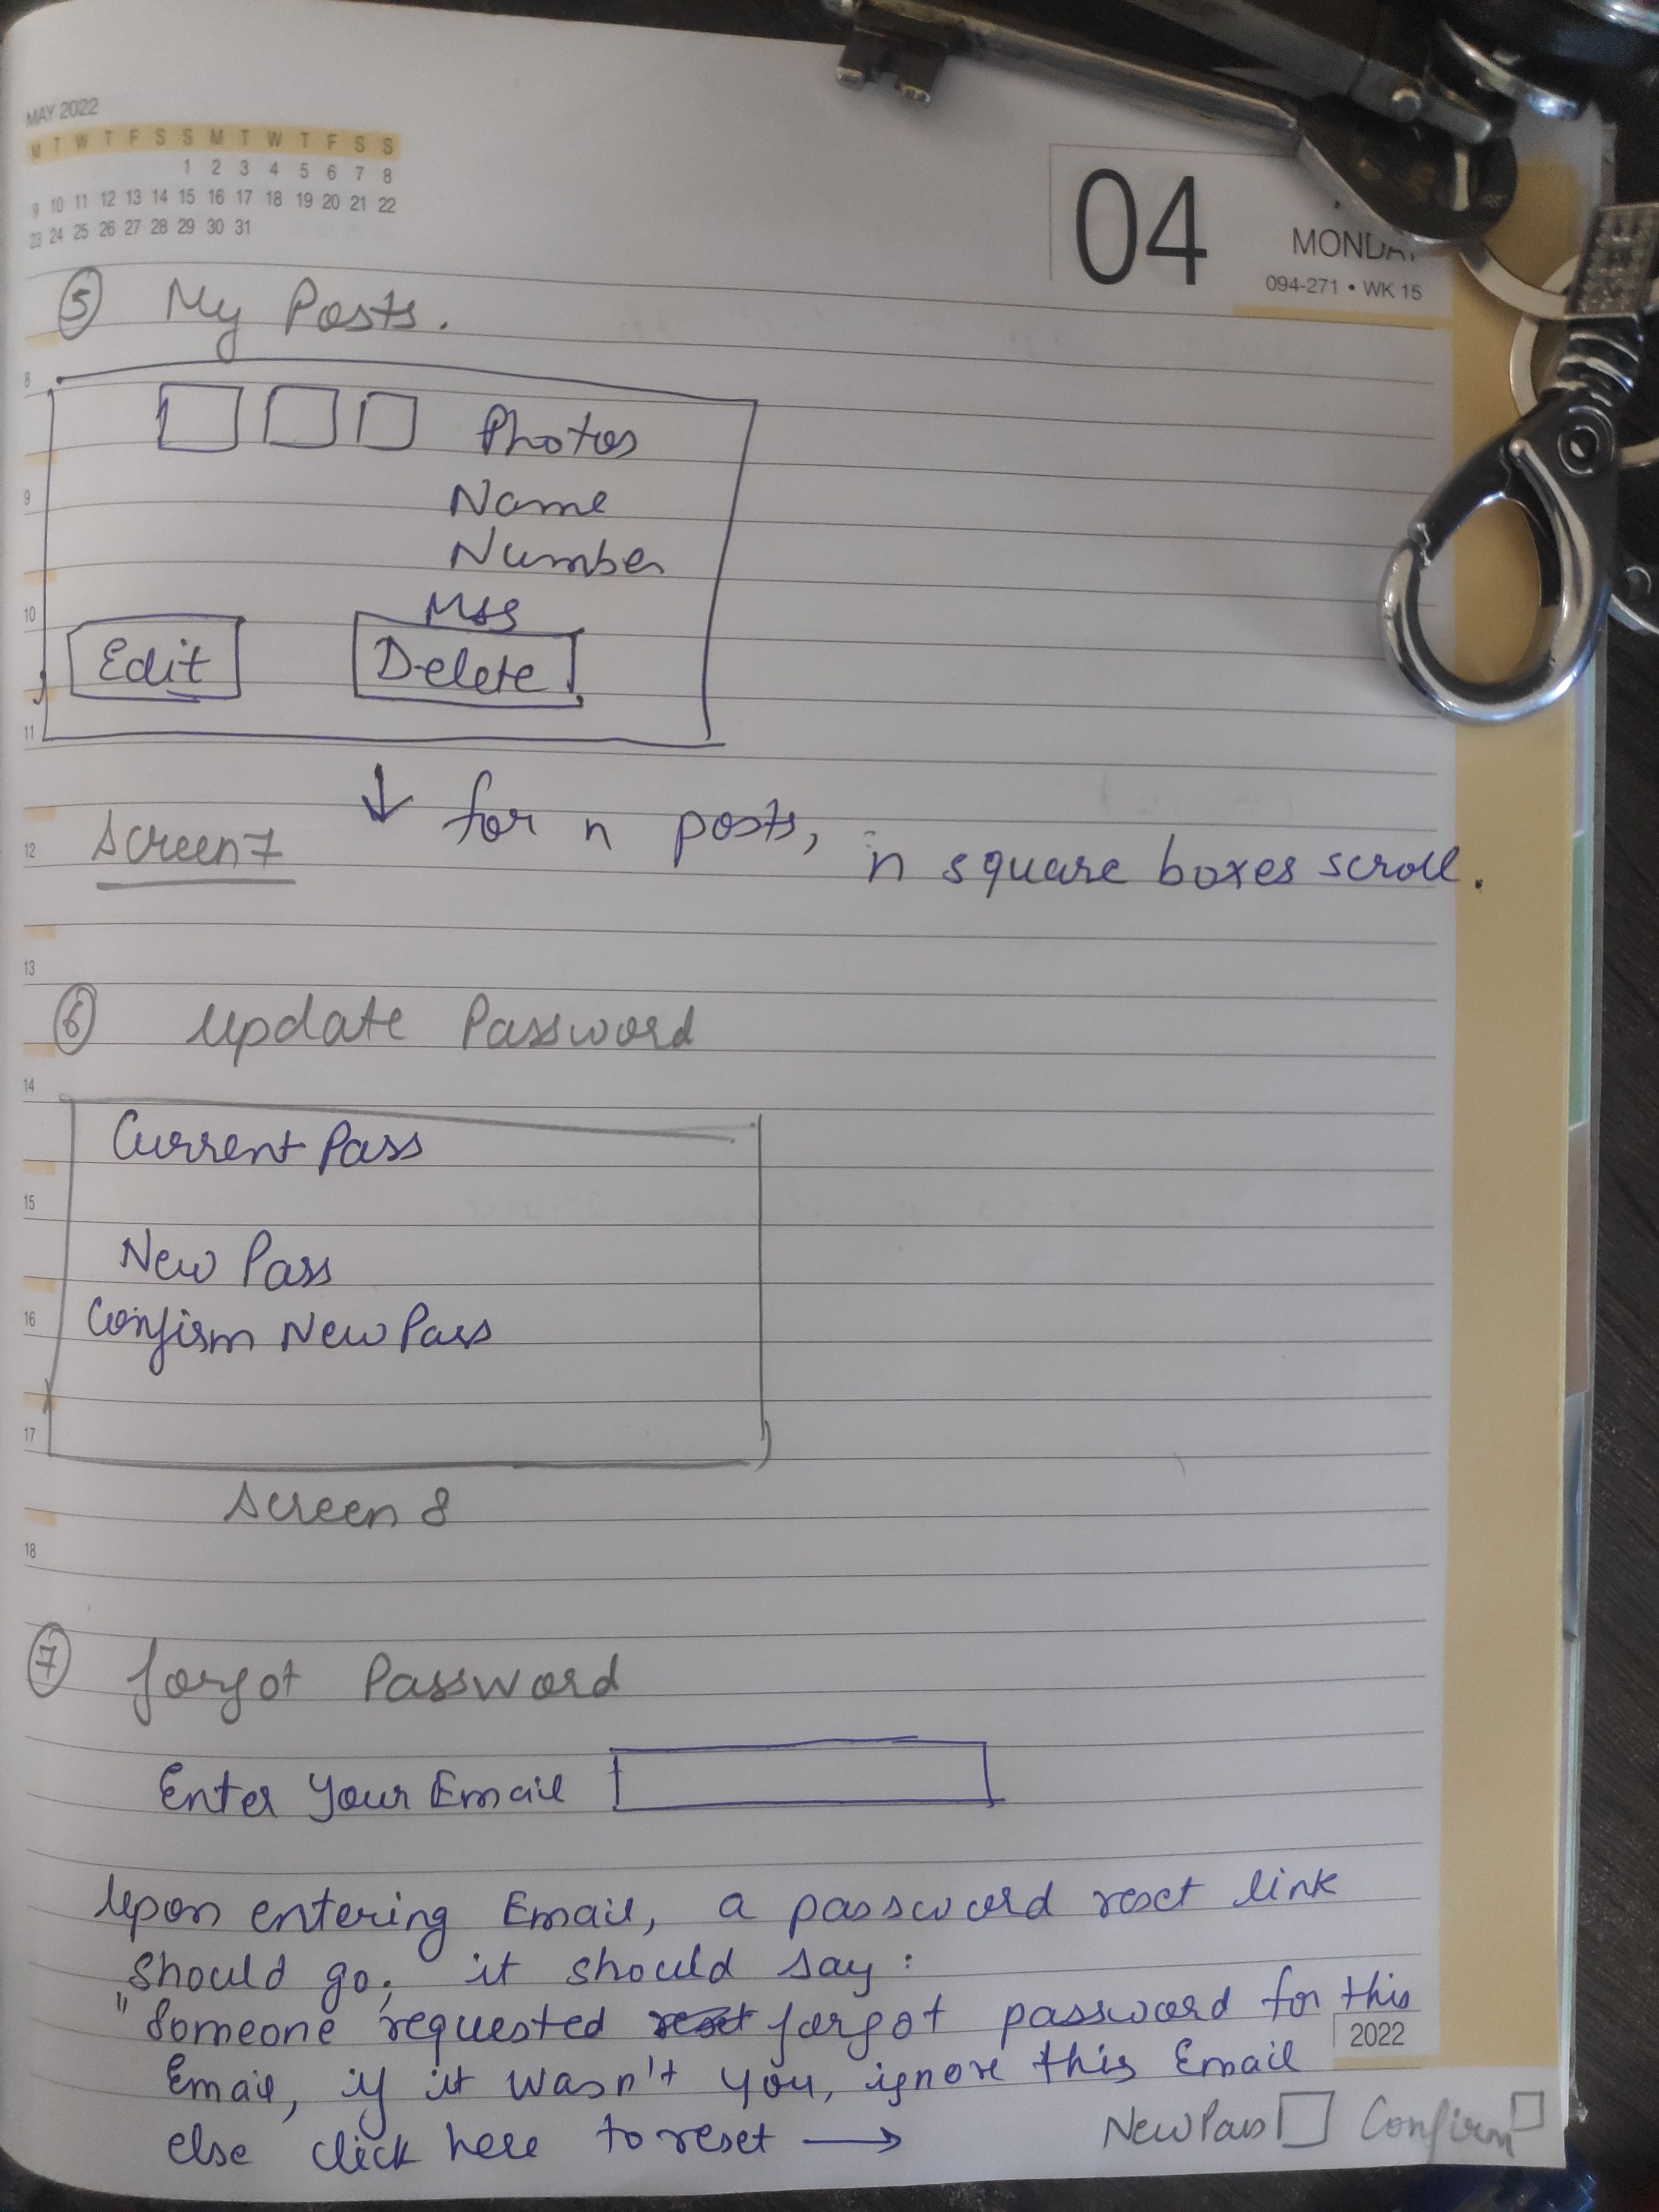 MAY 2022
M T W T F S S M T W T F S S
1 2 3 4 5 6 7 8
9 10 11 12 13 14 15 16 17 18 19 20 21 22
23 24 25 26 27 28 29 30 31
04
MONDAY
094-271 • WK 15
5 My Posts.
8
Photos
9
Name
Number
10
Msg
Edit Delete
11
↓ for n posts, n square boxes scroll.
12
Screen 7
13
6 Update Password
14
Current Pass
15
New Pass
16
Confirm New Pass
17
Screen 8
18
7 forgot Password
Enter Your Email
Upon entering Email, a password reset link
should go, it should say:
"Someone requested reset forgot password for this
2022
Email, if it wasn't you, ignore this Email
else click here to reset → New Pass Confirm